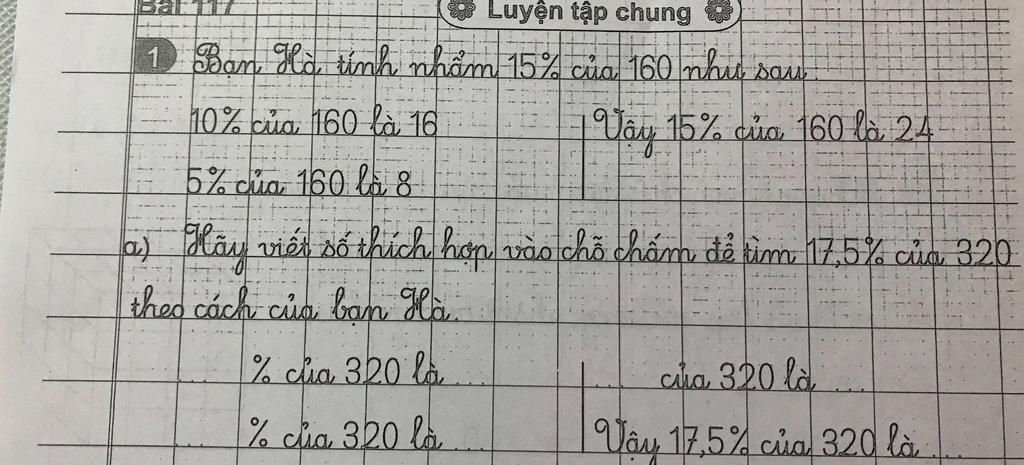 Bài 117
Luyện tập chung
1 Bạn Hà tính nhẩm 15% của 160 như sau
10% của 160 là 16
Vậy 15% của 160 là 24
5% của 160 là 8
a) Hãy viết số thích hợp vào chỗ chấm để tìm 17,5% của 320
theo cách của bạn Hà.
... % của 320 là ...
... của 320 là ...
... % của 320 là ...
Vậy 17,5% của 320 là ...